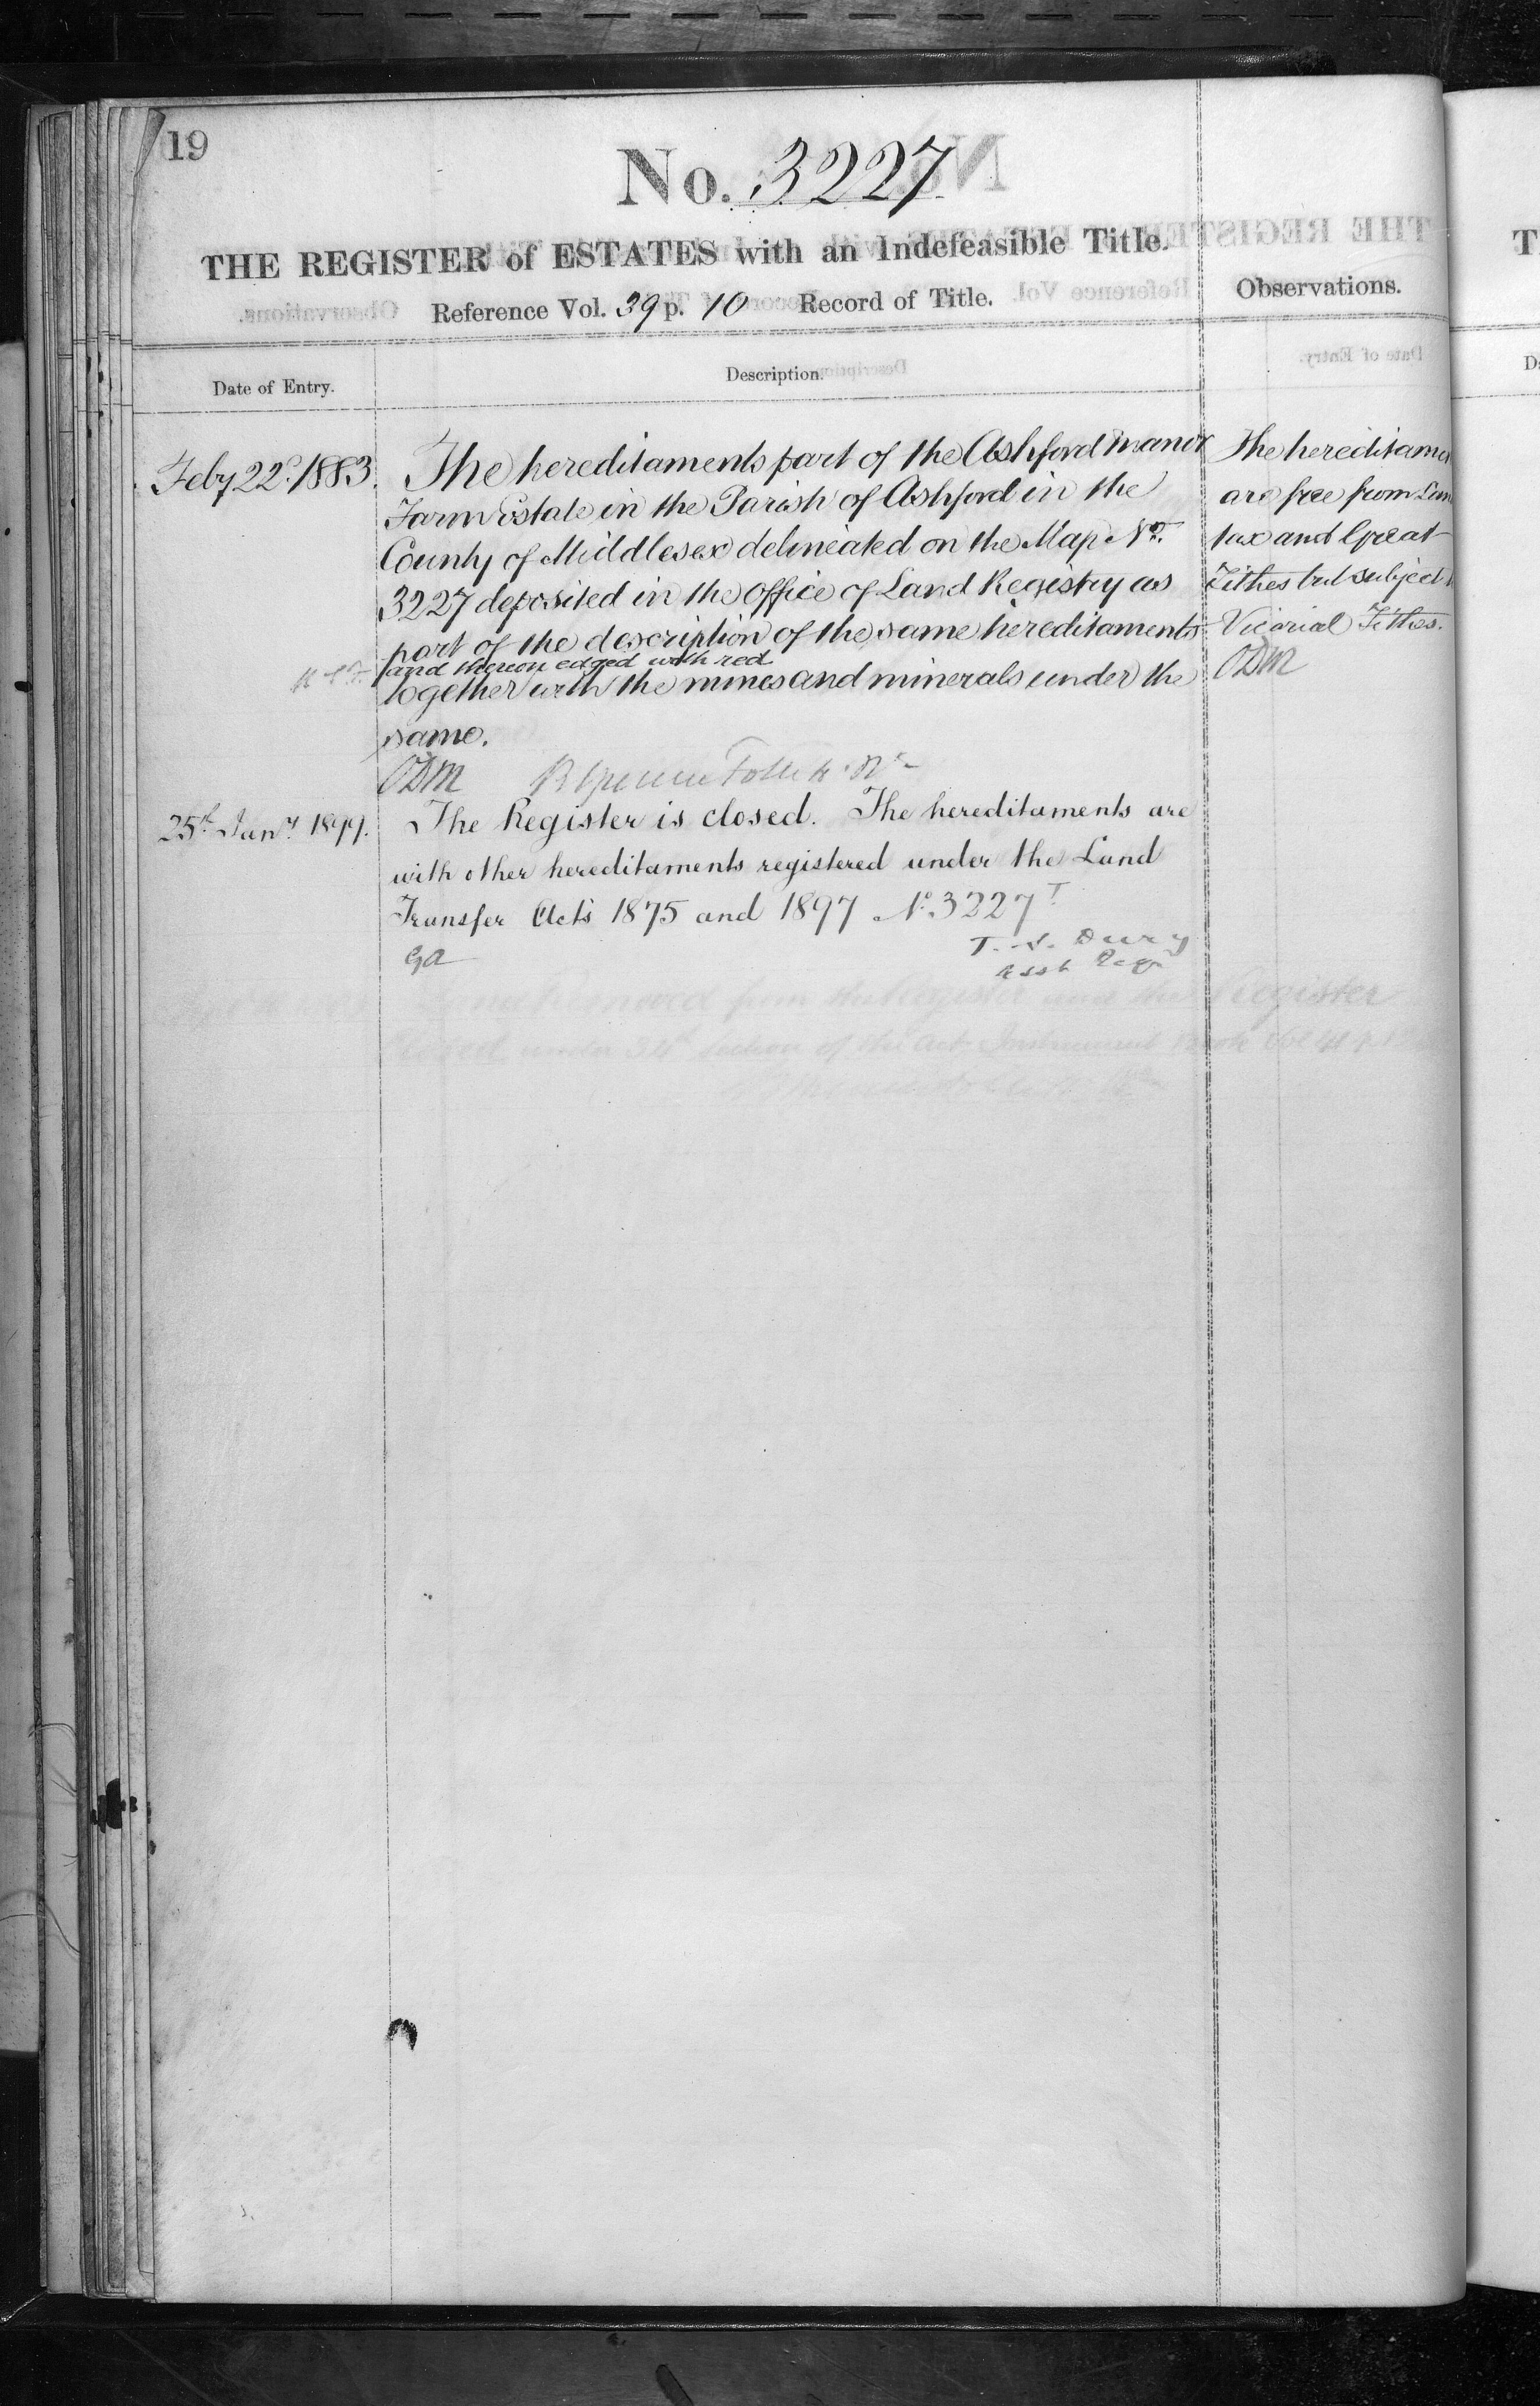 19
No. 3227
THE REGISTER of ESTATES with an Indefeasible Title.
Reference Vol. 39 p. 10 Record of Title.
Observations.
Date of Entry.
Description.
Feby 22d. 1883.
The hereditaments part of the Ashford Manor
Farm Estate in the Parish of Ashford in the
County of Middlesex delineated on the Map No.
3227 deposited in the Office of Land Registry as
part of the description of the same hereditaments
and thereon edged with red
together with the mines and minerals under the
same.
ODM
The hereditame
are free from
tax and Great
Tithes but subject
Vicarial Tithes.
ODM
25th Jany. 1899.
The Register is closed. The hereditaments are
with other hereditaments registered under the Land
Transfer Acts 1875 and 1897 No. 3227 T
GA
T. S. Dury
Asst Regr